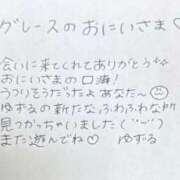 グレースのおにいさま♡
会いに来てくれてありがとう✨
おにいさまの口癖!
うつりそうだったよあなた〜☺
ゆずるの新たなふわふわな所
見つかっちゃいました(˙꒳˙)
また遊んでね♡ ゆずる